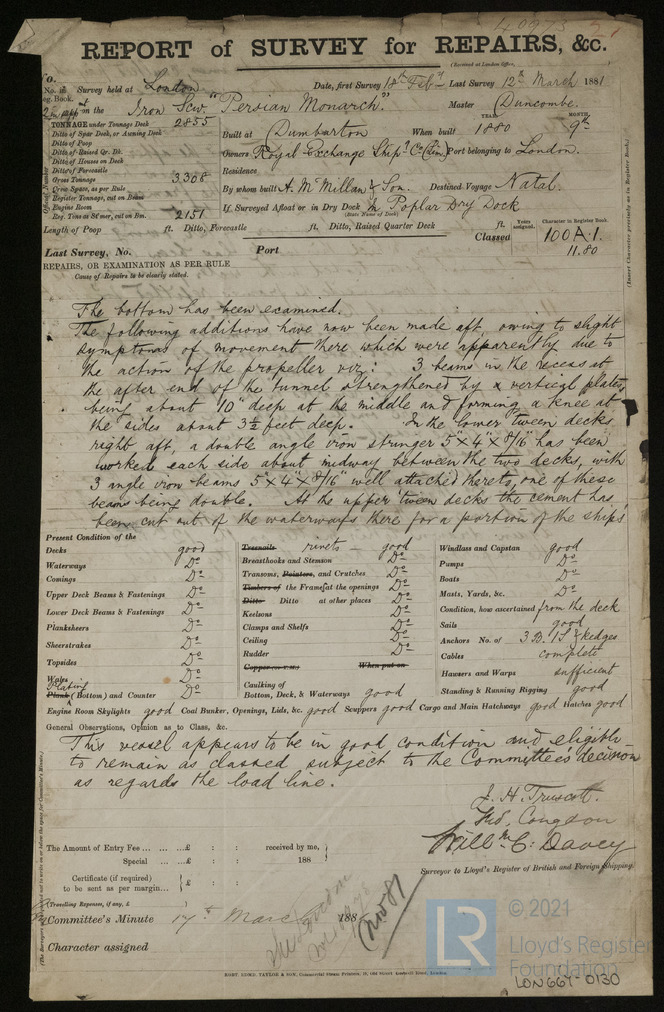 40973
REPORT of SURVEY for REPAIRS, &c.
(Received at London Office,
No.
No. in Survey held at London Date, first Survey 18th Feby Last Survey 12th March 1881
Reg. Book.
on the Iron Scw "Persian Monarch". Master Duncombe.
TONNAGE under Tonnage Deck 2855
Ditto of Spar Deck, or Awning Deck
Ditto of Poop
Ditto of Raised Qr. Dk.
Ditto of Houses on Deck
Ditto of Forecastle
Gross Tonnage 3308
Crew Space, as per Rule
Register Tonnage, cut on Beam
Engine Room
Reg. Tons as St'mer, cut on Bm. 2151
YEAR MONTH
Built at Dumbarton When built 1880 9
Owners Royal Exchange Shipg Co (Lim) Port belonging to London.
Residence
By whom built A. McMillan & Son. Destined Voyage Natal.
If Surveyed Afloat or in Dry Dock In Poplar Dry Dock
(State Name of Dock)
Length of Poop ft. Ditto, Forecastle ft. Ditto, Raised Quarter Deck ft.
Classed Years assigned. Character in Register Book.
100A.1.
11.80
Last Survey, No. Port
REPAIRS, OR EXAMINATION AS PER RULE
Cause of Repairs to be clearly stated.
(Insert Character precisely as in Register Book)
The bottom has been examined.
The following additions have now been made aft, owing to slight
symptoms of movement there which were apparently due to
the action of the propeller viz: 3 beams in the recess at
the after end of the tunnel strengthened by vertical plates
being about 10" deep at the middle and forming a knee at
the sides about 3½ feet deep. In the lower tween decks
right aft, a double angle iron stringer 5"x4"x8/16" has been
worked each side about midway between the two decks, with
3 angle iron beams 5"x4"x8/16" well attached thereto, one of these
beams being double. At the upper 'tween decks the cement has
been cut out of the waterways there for a portion of the ship's
Present Condition of the
Decks good
Waterways Do
Comings Do
Upper Deck Beams & Fastenings Do
Lower Deck Beams & Fastenings Do
Planksheers Do
Sheerstrakes Do
Topsides Do
Wales Do
Plating
Plank (Bottom) and Counter Do
Treenails rivets - good
Breasthooks and Stemson Do
Transoms, Pointers, and Crutches Do
Timbers of the Frames at the openings Do
Ditto Ditto at other places Do
Keelsons Do
Clamps and Shelfs Do
Ceiling Do
Rudder Do
Copper When put on
Caulking of
Bottom, Deck, & Waterways good
Windlass and Capstan good
Pumps Do
Boats Do
Masts, Yards, &c. Do
Condition, how ascertained from the deck
Sails good
Anchors No. of 3 B. 1 S & kedges
Cables complete
Hawsers and Warps sufficient
Standing & Running Rigging good
Engine Room Skylights good Coal Bunker, Openings, Lids, &c. good Scuppers good Cargo and Main Hatchways good Hatches good
General Observations, Opinion as to Class, &c.
This vessel appears to be in good condition and eligible
to remain as classed subject to the Committee's decision
as regards the load line.
J. H. Truscott.
Willm C. Davey
Surveyor to Lloyd's Register of British and Foreign Shipping.
The Amount of Entry Fee ... ... ...£ : : received by me,
Special ... ...£ : : 188
Certificate (if required)
to be sent as per margin... £ : :
(Travelling Expenses, if any, £ )
Committee's Minute 17th March 188
Character assigned
© 2021
LR
Lloyd's Register
Foundation
LON667-0130